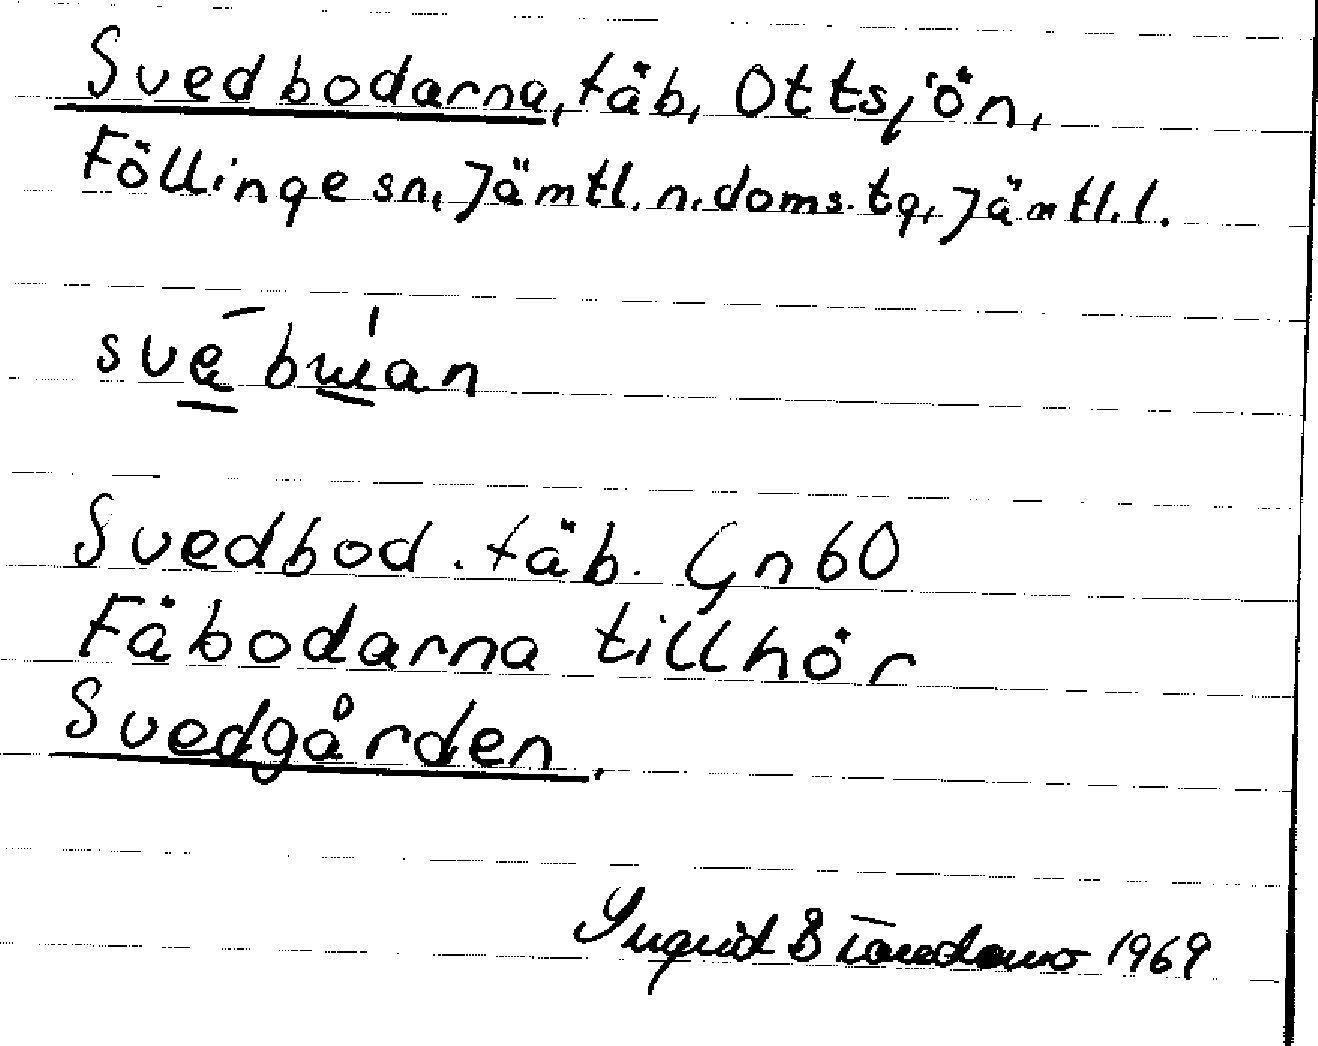 Svedbodarna, fäb, Ottsjön,
Föllinge sn, Jämtl. n. doms. tg, Jämtl. l.
Svedbod. fäb. Gn 60
Fäbodarna tillhör
Svedgården.
Ingrid 1969